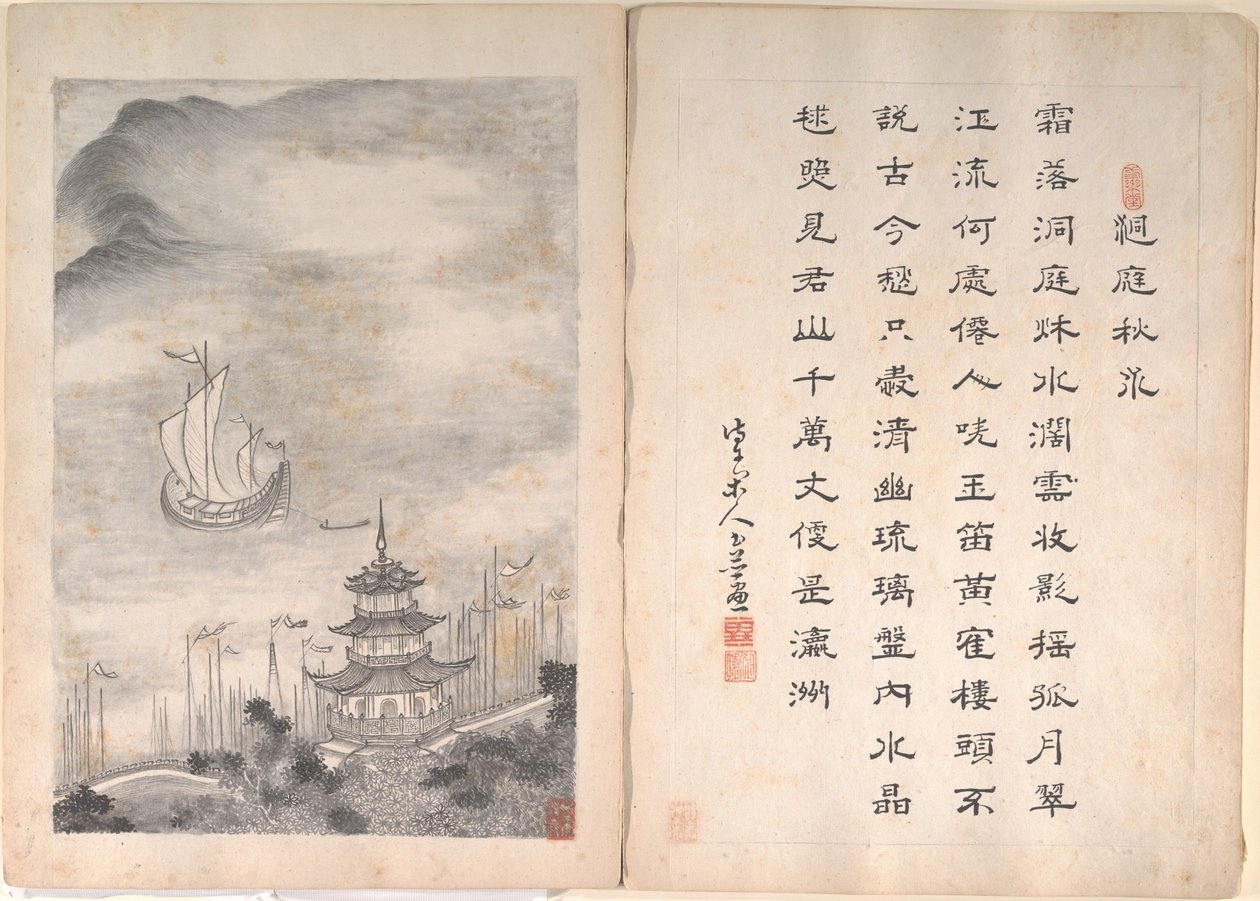 洞庭秋水
霜落洞庭秌水濶雲收影揺孤月翠
江流何處僊人吹玉笛黃寉樓頭不
說古今愁只愛清幽琉璃盤內水晶
毬照見君山千萬丈便是瀛洲
人書并畫